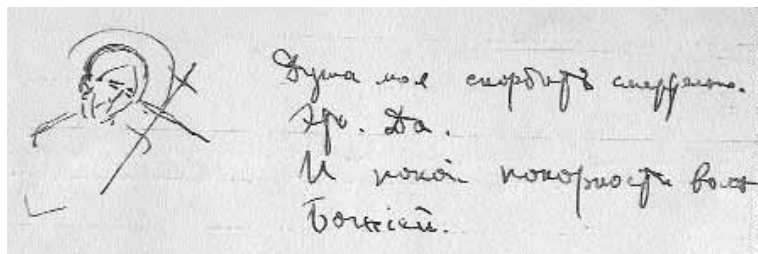 Душа моя скорбитъ смертельно.
Это. Да.
И покой покорности волѣ
Божіей.